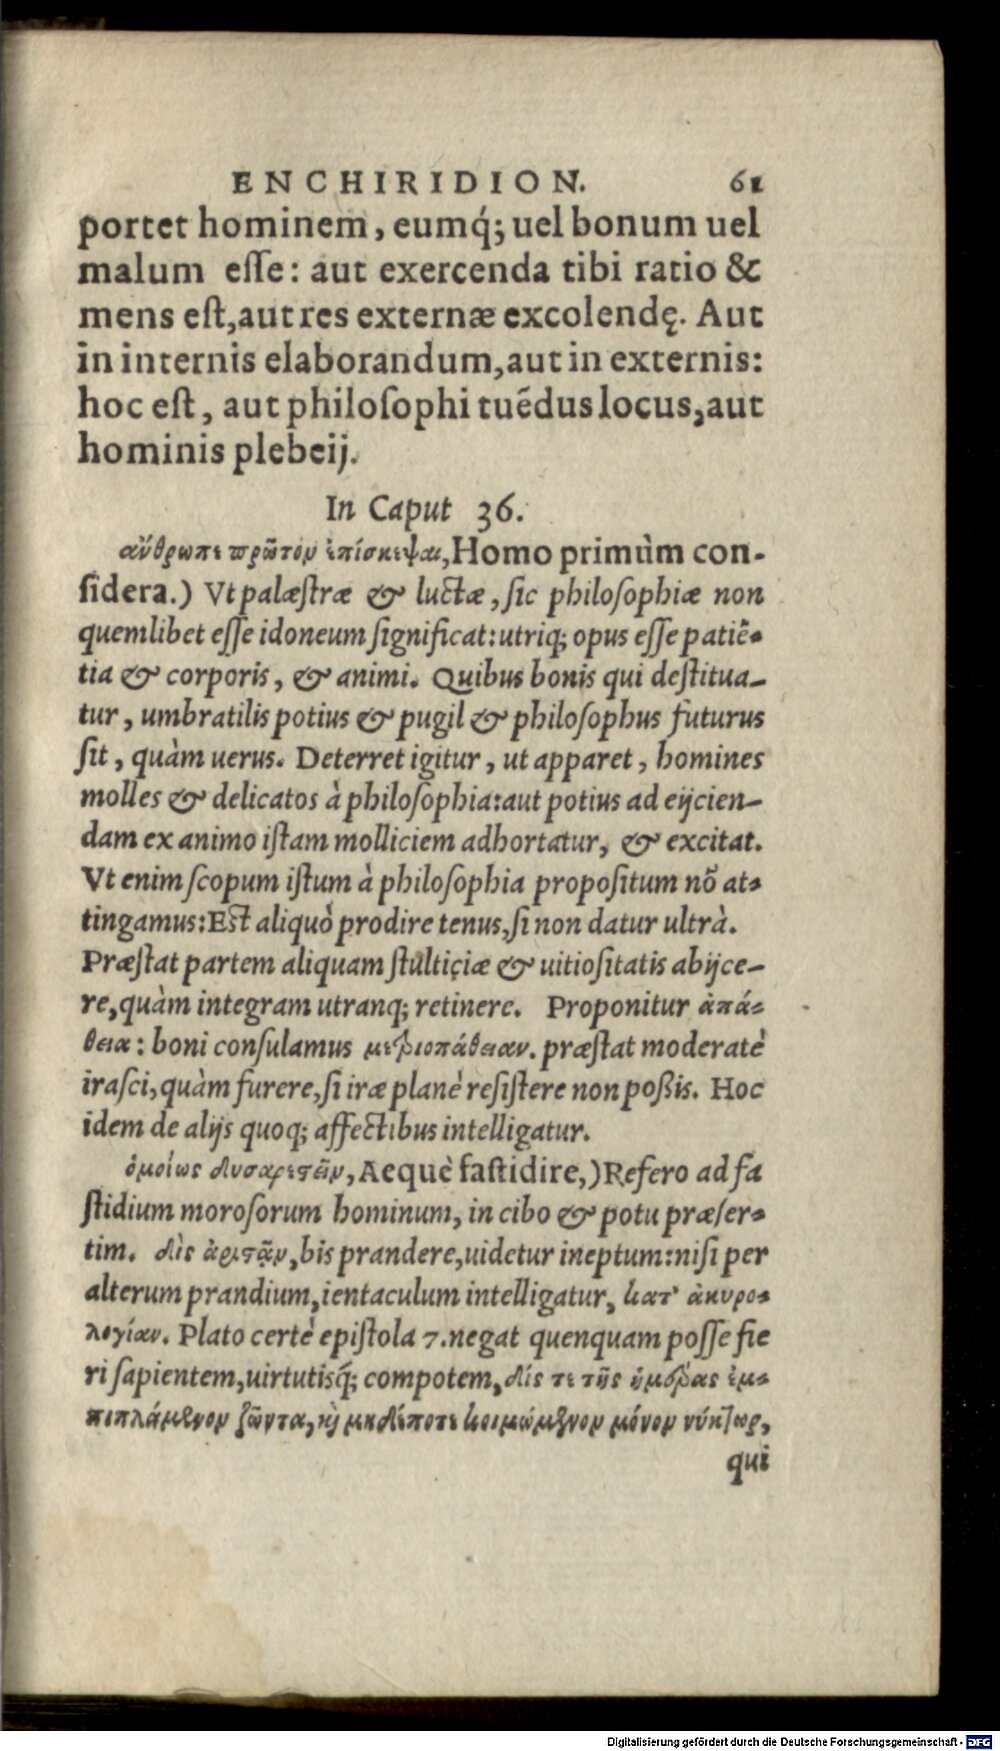 ENCHIRIDION. 61
portet hominem, eumq́; uel bonum uel
malum eſſe: aut exercenda tibi ratio &
mens eſt, aut res externæ excolendę. Aut
in internis elaborandum, aut in externis:
hoc eſt, aut philoſophi tuẽdus locus, aut
hominis plebeij.
In Caput 36.
ἄνθρωπε πρῶτον ἐπίσκεψαι, Homo primùm con-
ſidera.) Vt palæſtræ & luctæ, ſic philoſophiæ non
quemlibet eſſe idoneum ſignificat: utriq; opus eſſe patiẽ-
tia & corporis, & animi. Quibus bonis qui deſtitua-
tur, umbratilis potius & pugil & philoſophus futurus
ſit, quàm uerus. Deterret igitur, ut apparet, homines
molles & delicatos à philoſophia: aut potius ad eijcien-
dam ex animo iſtam molliciem adhortatur, & excitat.
Vt enim ſcopum iſtum à philoſophia propoſitum nõ at-
tingamus: Eſt aliquò prodire tenus, ſi non datur ultrà.
Præſtat partem aliquam ſtulticiæ & uitioſitatis abijce-
re, quàm integram utranq; retinere. Proponitur ἀπά-
θεια: boni conſulamus μετριοπάθειαν. præſtat moderatè
iraſci, quàm furere, ſi iræ planè reſiſtere non poßis. Hoc
idem de alijs quoq; affectibus intelligatur.
ὁμοίως δυσαρεστεῖν, Aequè faſtidire,) Refero ad fa
ſtidium moroſorum hominum, in cibo & potu præſer-
tim. δὶς ἀριστᾷν, bis prandere, uidetur ineptum: niſi per
alterum prandium, ientaculum intelligatur, κατ' ἀκυρο-
λογίαν. Plato certè epiſtola 7. negat quenquam poſſe fie
ri ſapientem, uirtutisq́; compotem, δίς τε τῆς ἡμέρας ἐμ-
πιπλάμενον ζῶντα, καὶ μηδέποτε κοιμώμενον μόνον νύκτωρ,
qui
Digitalisierung gefördert durch die Deutsche Forschungsgemeinschaft - DFG